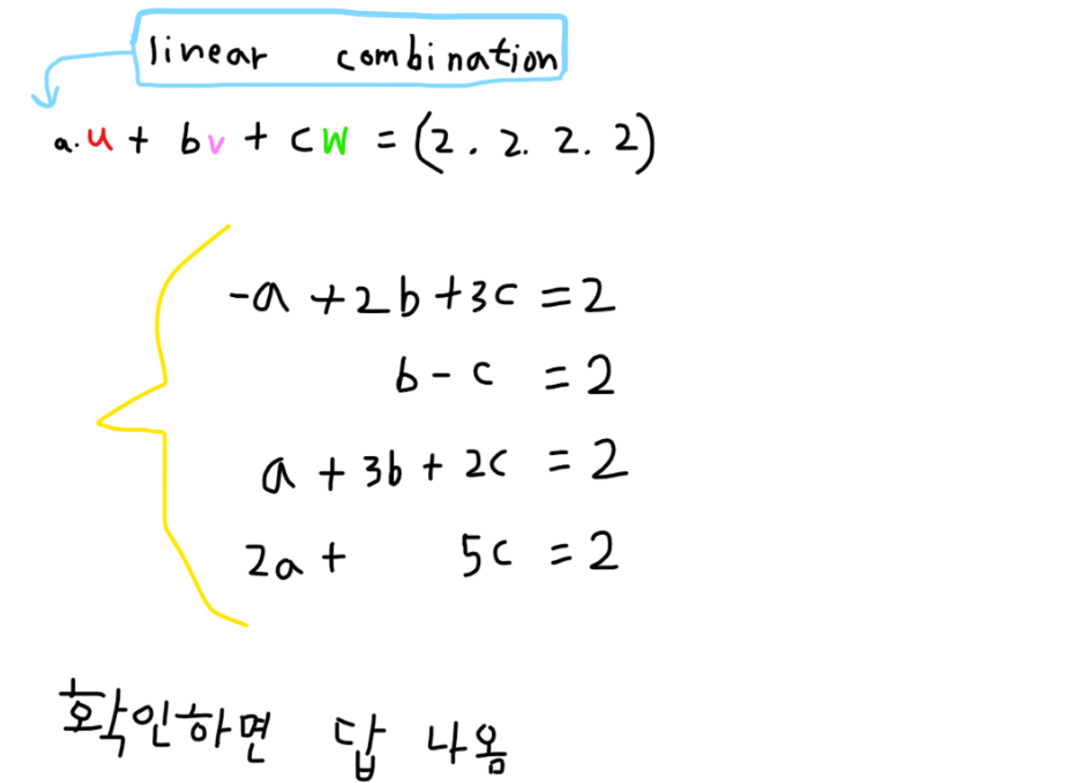 linear combination
a.u + bv + cw = (2. 2. 2. 2)
-a + 2b + 3c = 2
b - c = 2
a + 3b + 2c = 2
2a + 5c = 2
확인하면 답 나옴